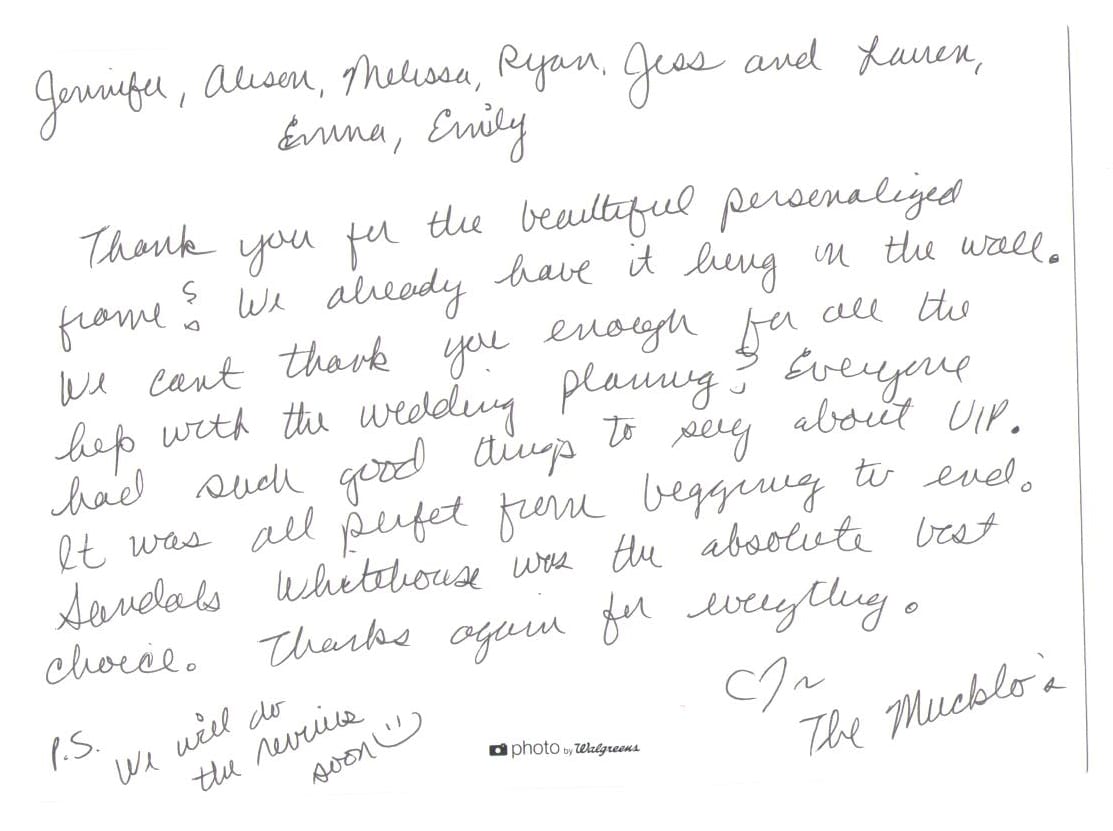 Jennifer, Alison, Melissa, Ryan, Jess and Lauren,
Emma, Emily
Thank you for the beautiful personalized
frame! We already have it hung on the wall.
We cant thank you enough for all the
help with the wedding planning! Everyone
had such good things to say about VIP.
It was all perfet from beggining to end.
Sandals Whitehouse was the absolute best
choice. Thanks again for everything.
The Mucklo's
P.S. We will do
the reviews
soon :)
photo by Walgreens